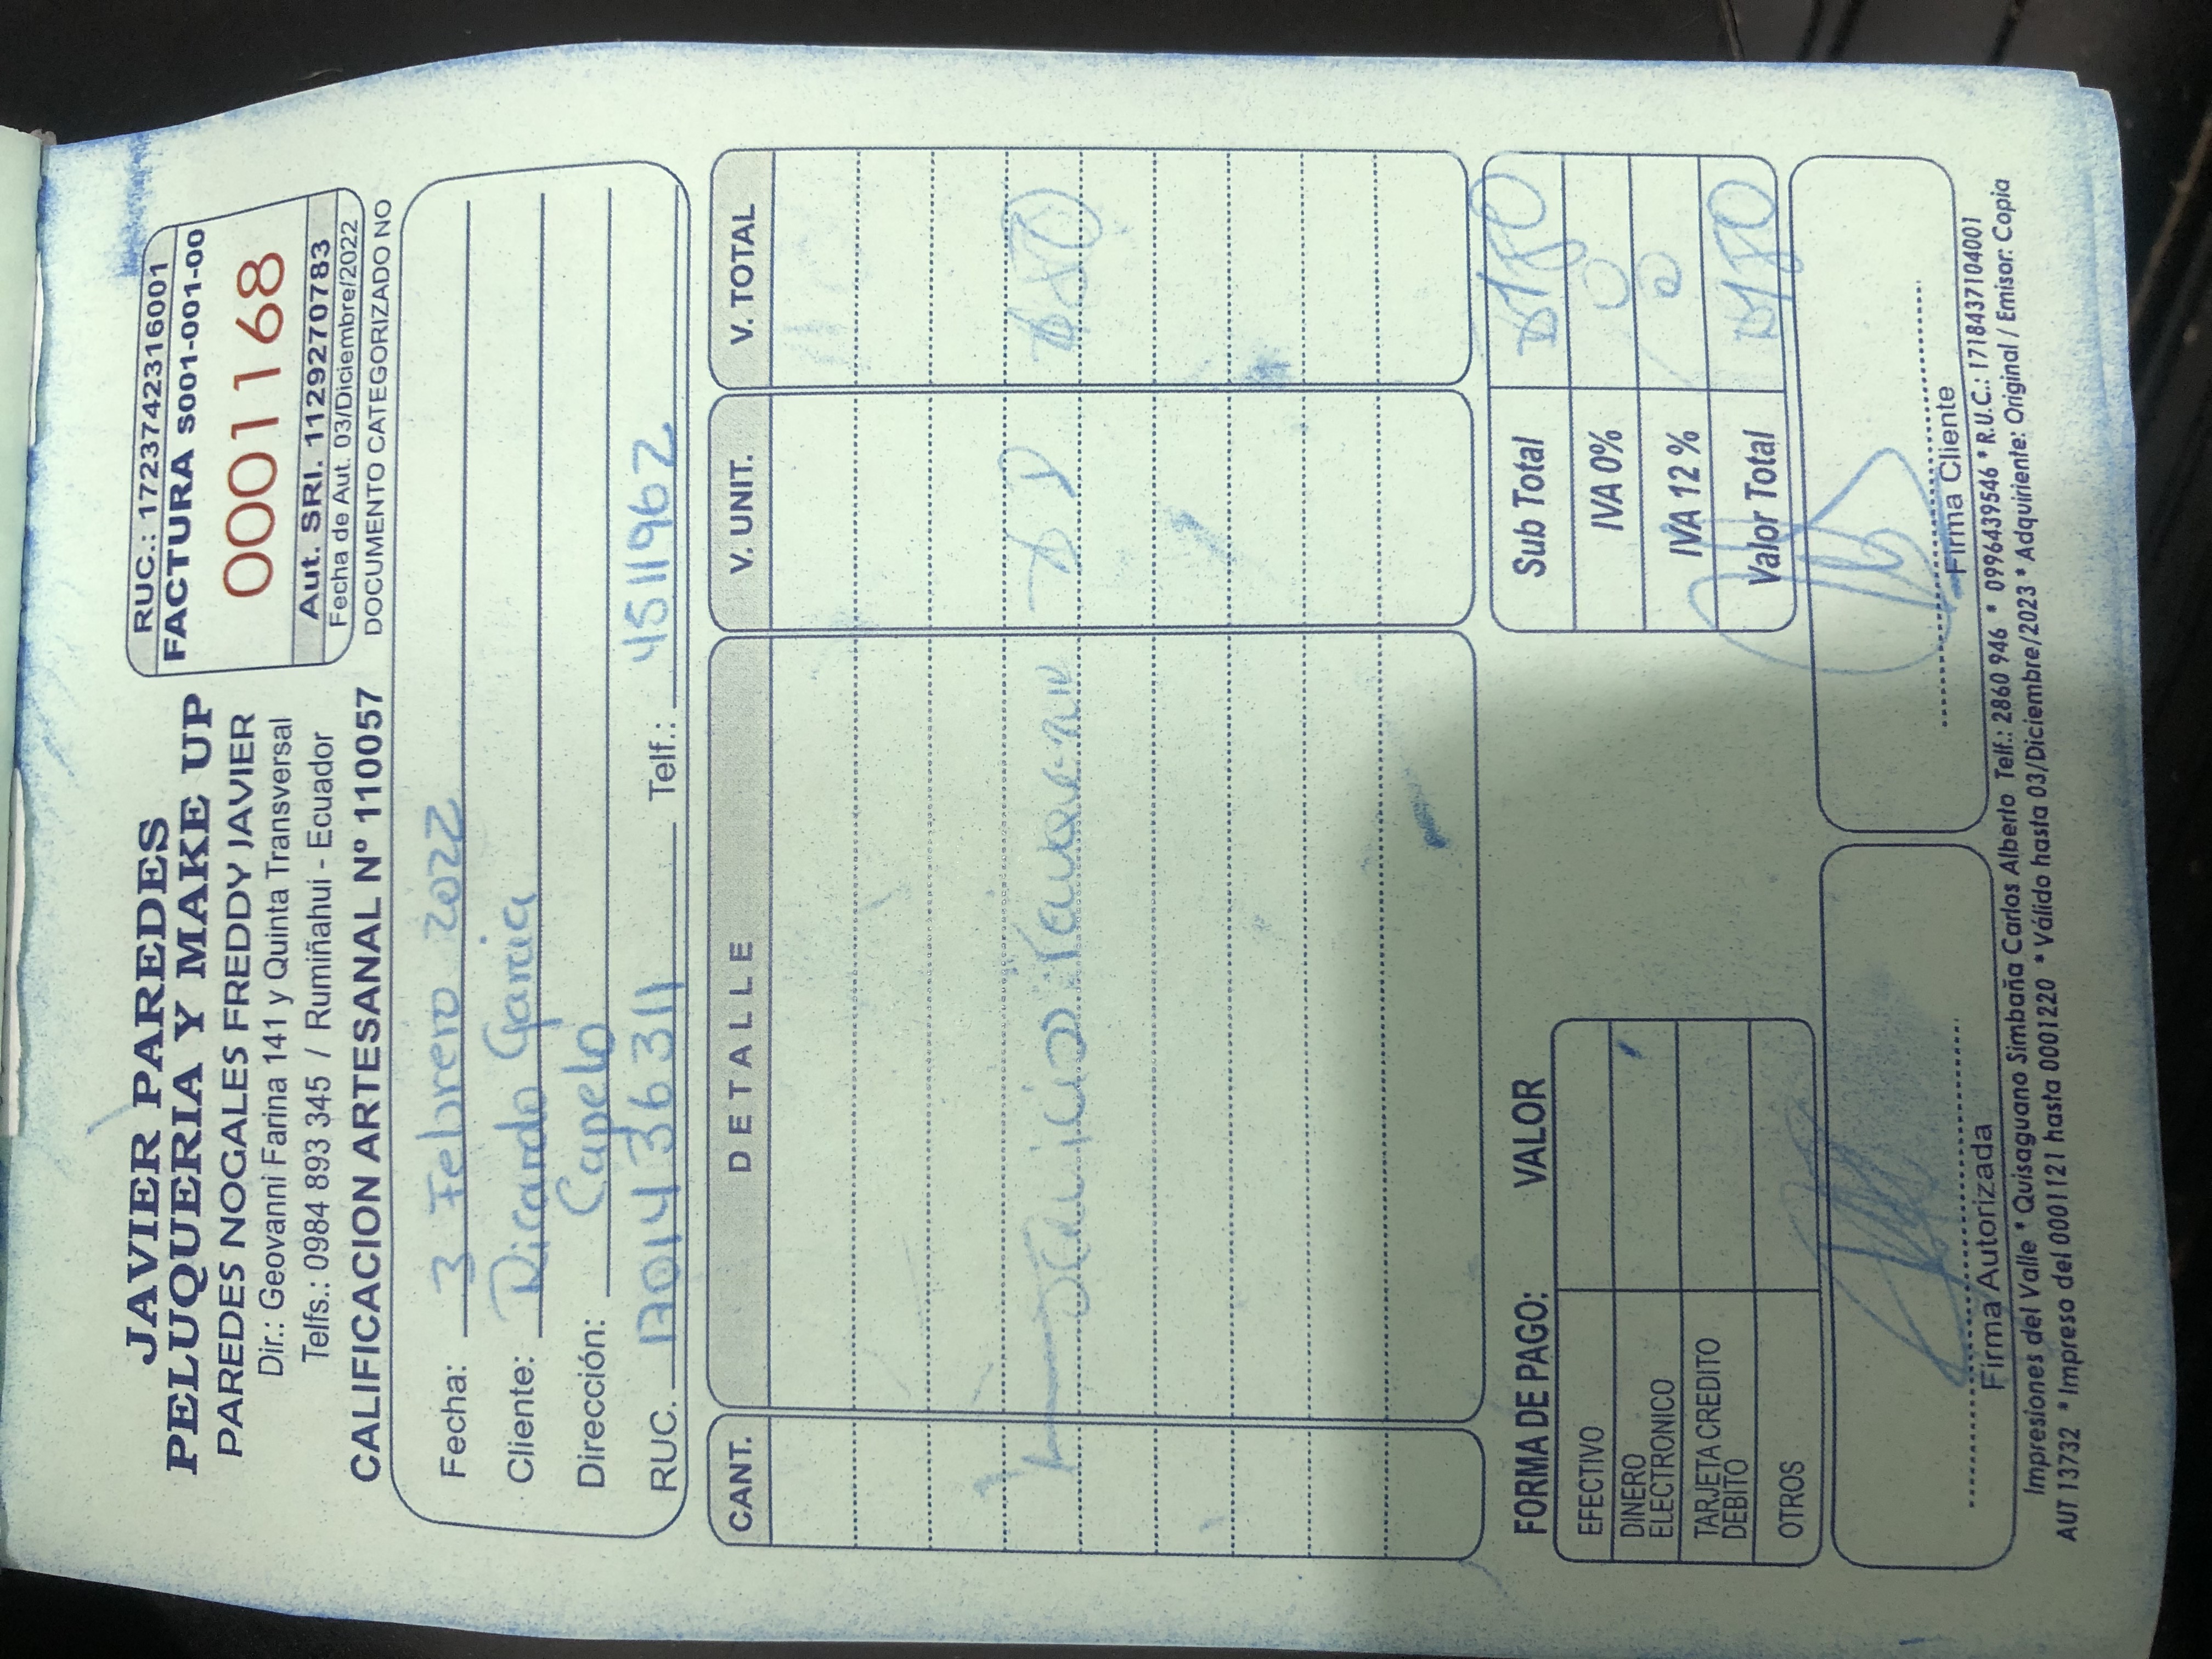 JAVIER PAREDES
PELUQUERIA Y MAKE UP
PAREDES NOGALES FREDDY JAVIER
Dir.: Geovanni Farina 141 y Quinta Transversal
Telfs.: 0984 893 345 / Rumiñahui - Ecuador
CALIFICACION ARTESANAL Nº 110057
RUC.: 1723742316001
FACTURA S001-001-00
0001168
Aut. SRI. 1129270783
Fecha de Aut. 03/Diciembre/2022
DOCUMENTO CATEGORIZADO NO
Fecha: 3 Febrero 2022
Cliente: Ricardo Garcia
Dirección: Capelo
RUC. 1701436311 Telf.: 4511962
CANT. DETALLE V. UNIT. V. TOTAL
1 Servicios
FORMA DE PAGO: VALOR
EFECTIVO
DINERO
ELECTRONICO
TARJETA CREDITO
DEBITO
OTROS
Sub Total
IVA 0% 0
IVA 12 % 0
Valor Total
Firma Autorizada
Firma Cliente
Impresiones del Valle * Quisaguano Simbaña Carlos Alberto Telf.: 2860 946 * 0996439546 * R.U.C.: 1718437104001
AUT 13732 * Impreso del 0001121 hasta 0001220 * Válido hasta 03/Diciembre/2023 * Adquiriente: Original / Emisor: Copia